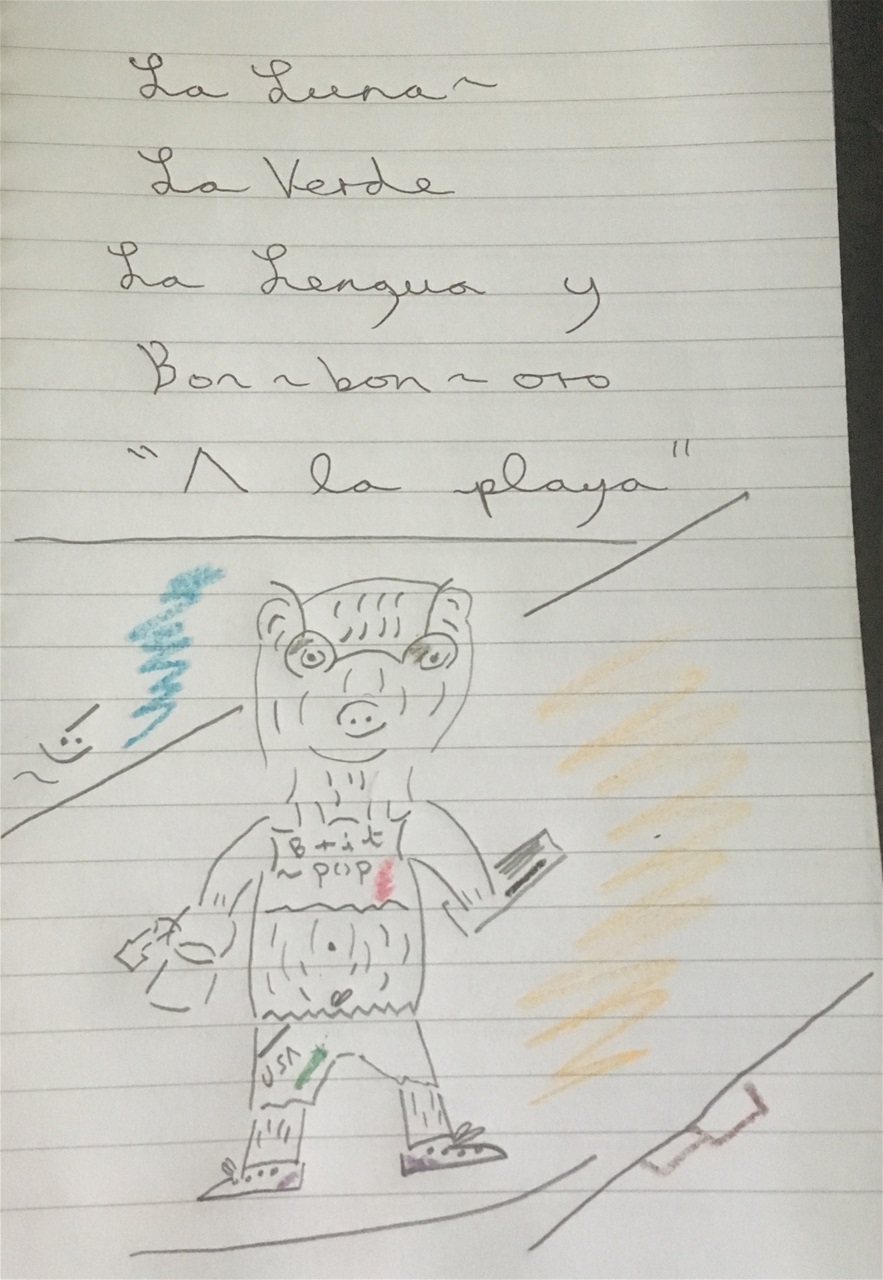 La Luna~
La Verde
La Lengua y
Bon~bon~oro
"A la playa"
B+it
~pop
USA